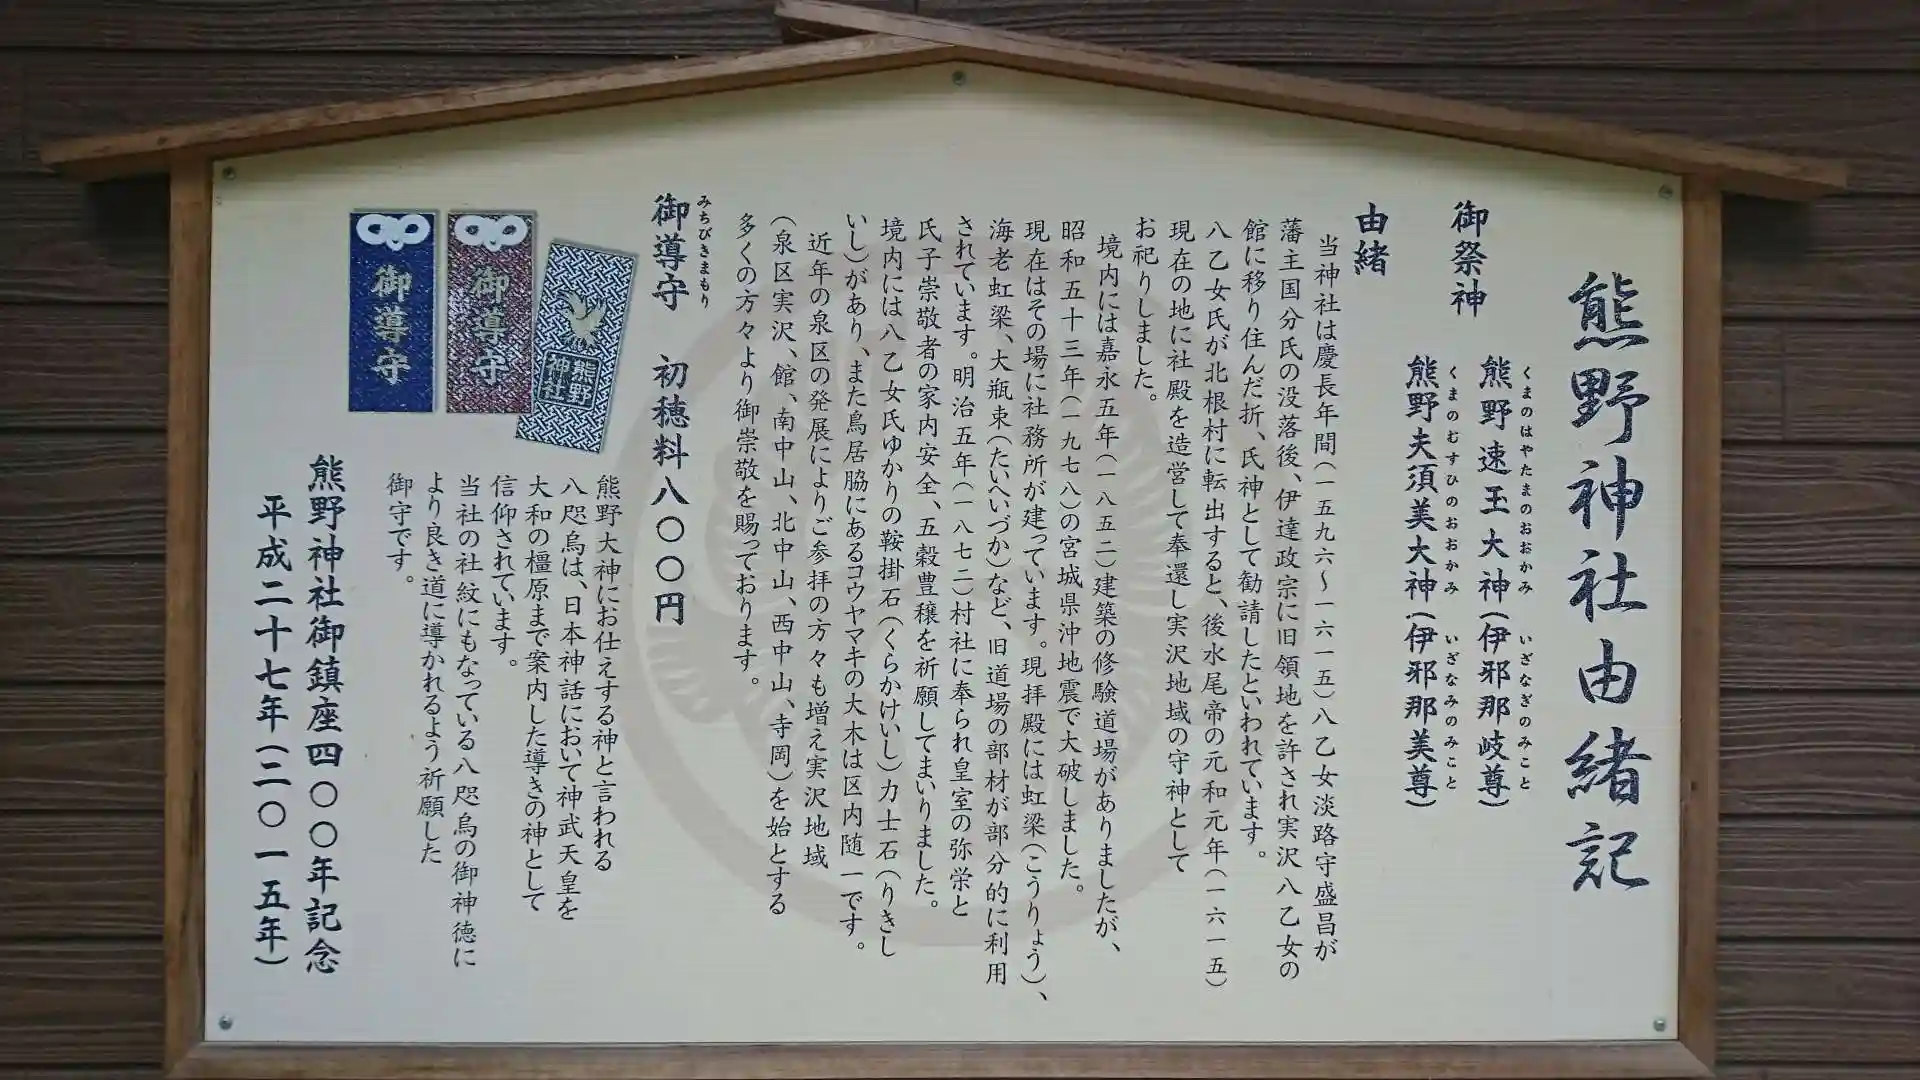 熊野神社由緒記
御祭神
熊野速玉大神(伊邪那岐尊)
くまのはやたまのおおかみ いざなぎのみこと
熊野夫須美大神(伊邪那美尊)
くまのむすひのおおかみ いざなみのみこと
由緒
当神社は慶長年間(一五九六〜一六一五)八乙女淡路守盛昌が
藩主国分氏の没落後、伊達政宗に旧領地を許され実沢八乙女の
館に移り住んだ折、氏神として勧請したといわれています。
八乙女氏が北根村に転出すると、後水尾帝の元和元年(一六一五)
現在の地に社殿を造営して奉還し実沢地域の守神として
お祀りしました。
境内には嘉永五年(一八五二)建築の修験道場がありましたが、
昭和五十三年(一九七八)の宮城県沖地震で大破しました。
現在はその場に社務所が建っています。現拝殿には虹梁(こうりょう)、
海老虹梁、大瓶束(たいへいづか)など、旧道場の部材が部分的に利用
されています。明治五年(一八七二)村社に奉られ皇室の弥栄と
氏子崇敬者の家内安全、五穀豊穣を祈願してまいりました。
境内には八乙女氏ゆかりの鞍掛石(くらかけいし)力士石(りきし
いし)があり、また鳥居脇にあるコウヤマキの大木は区内随一です。
近年の泉区の発展によりご参拝の方々も増え実沢地域
(泉区実沢、館、南中山、北中山、西中山、寺岡)を始とする
多くの方々より御崇敬を賜っております。
御導守 初穂料八〇〇円
みちびきまもり
熊野神社
御導守
御導守
熊野大神にお仕えする神と言われる
八咫烏は、日本神話において神武天皇を
大和の橿原まで案内した導きの神として
信仰されています。
当社の社紋にもなっている八咫烏の御神徳に
より良き道に導かれるよう祈願した
御守です。
熊野神社御鎮座四〇〇年記念
平成二十七年(二〇一五年)